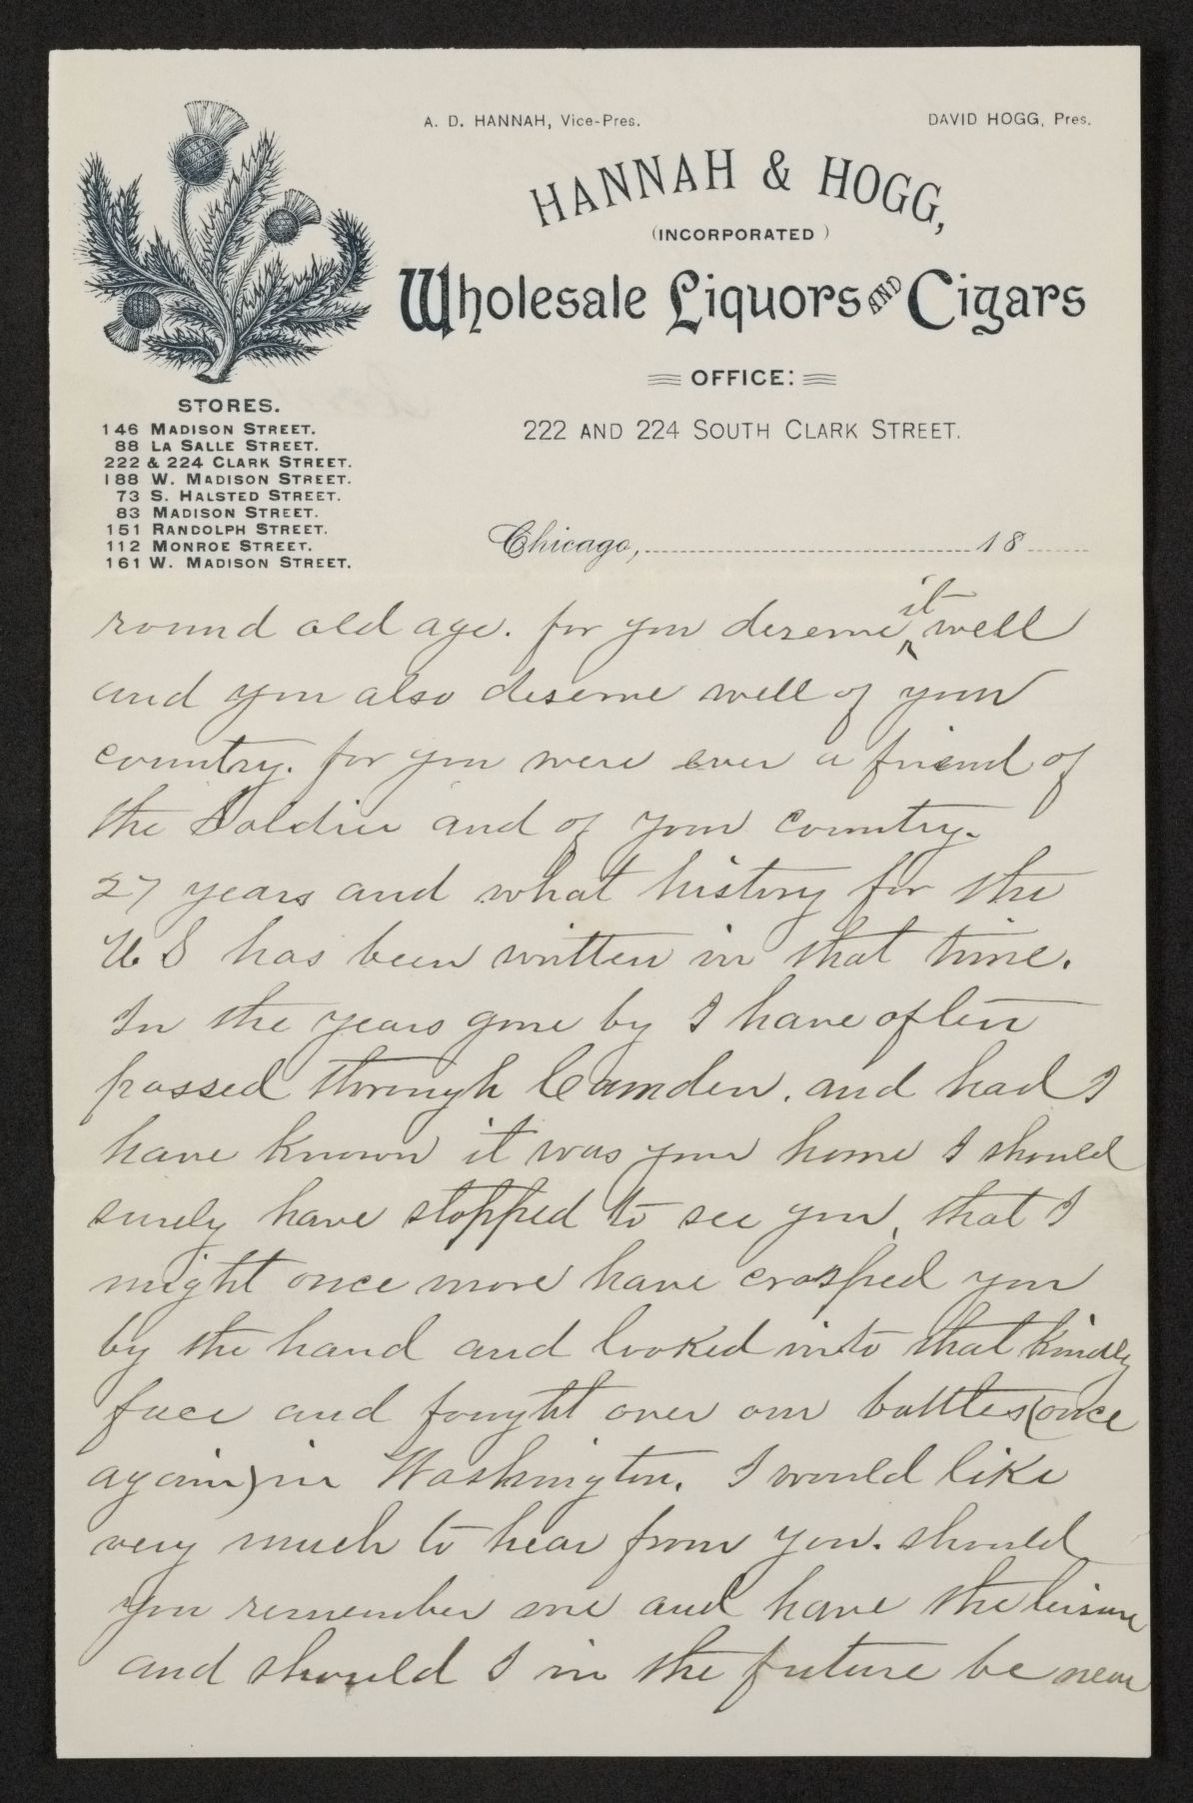 A. D. HANNAH, Vice-Pres.
DAVID HOGG, Pres.
HANNAH & HOGG,
(INCORPORATED)
Wholesale Liquors AND Cigars
OFFICE:
222 AND 224 SOUTH CLARK STREET.
STORES.
146 MADISON STREET.
88 LA SALLE STREET.
222 & 224 CLARK STREET.
188 W. MADISON STREET.
73 S. HALSTED STREET.
83 MADISON STREET.
151 RANDOLPH STREET.
112 MONROE STREET.
161 W. MADISON STREET.
Chicago, 18
round old age. for you deserve it well
and you also deserve well of your
country. for you were ever a friend of
the Soldier and of your country.
27 years and what history for the
U S has been written in that time.
In the years gone by I have often
passed through Camden. and had I
have known it was your home I should
surely have stopped to see you, that I
might once more have crasped you
by the hand and looked into that kindly
face and fought over our battles (once
again) in Washington. I would like
very much to hear from you. should
you remember me and have the leisure
and should I in the future be near